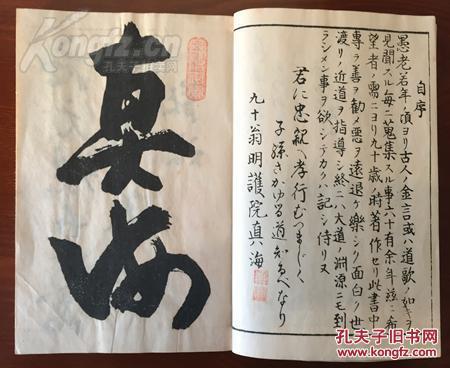 自序
愚老若年ノ頃ヨリ古人ノ金言或ハ道歌ノ如キヲ
見聞スル每ニ蒐集スル事六十有余年茲ニ希
望者ノ需ニヨリ九十歳ノ時著作セリ此書中
專ラ善ヲ勸メ惡ヲ遠退ケ樂シク面白ク世ヲ
渡リ近道ヲ指導シ終ニハ大道ノ淵源ニモ到
ラシメン事ヲ欲シテカクハ記シ侍リヌ
君に忠親へ孝行むつましく
子孫さかゆる道知るへなり
九十翁明護院真海
真海
孔夫子旧书网